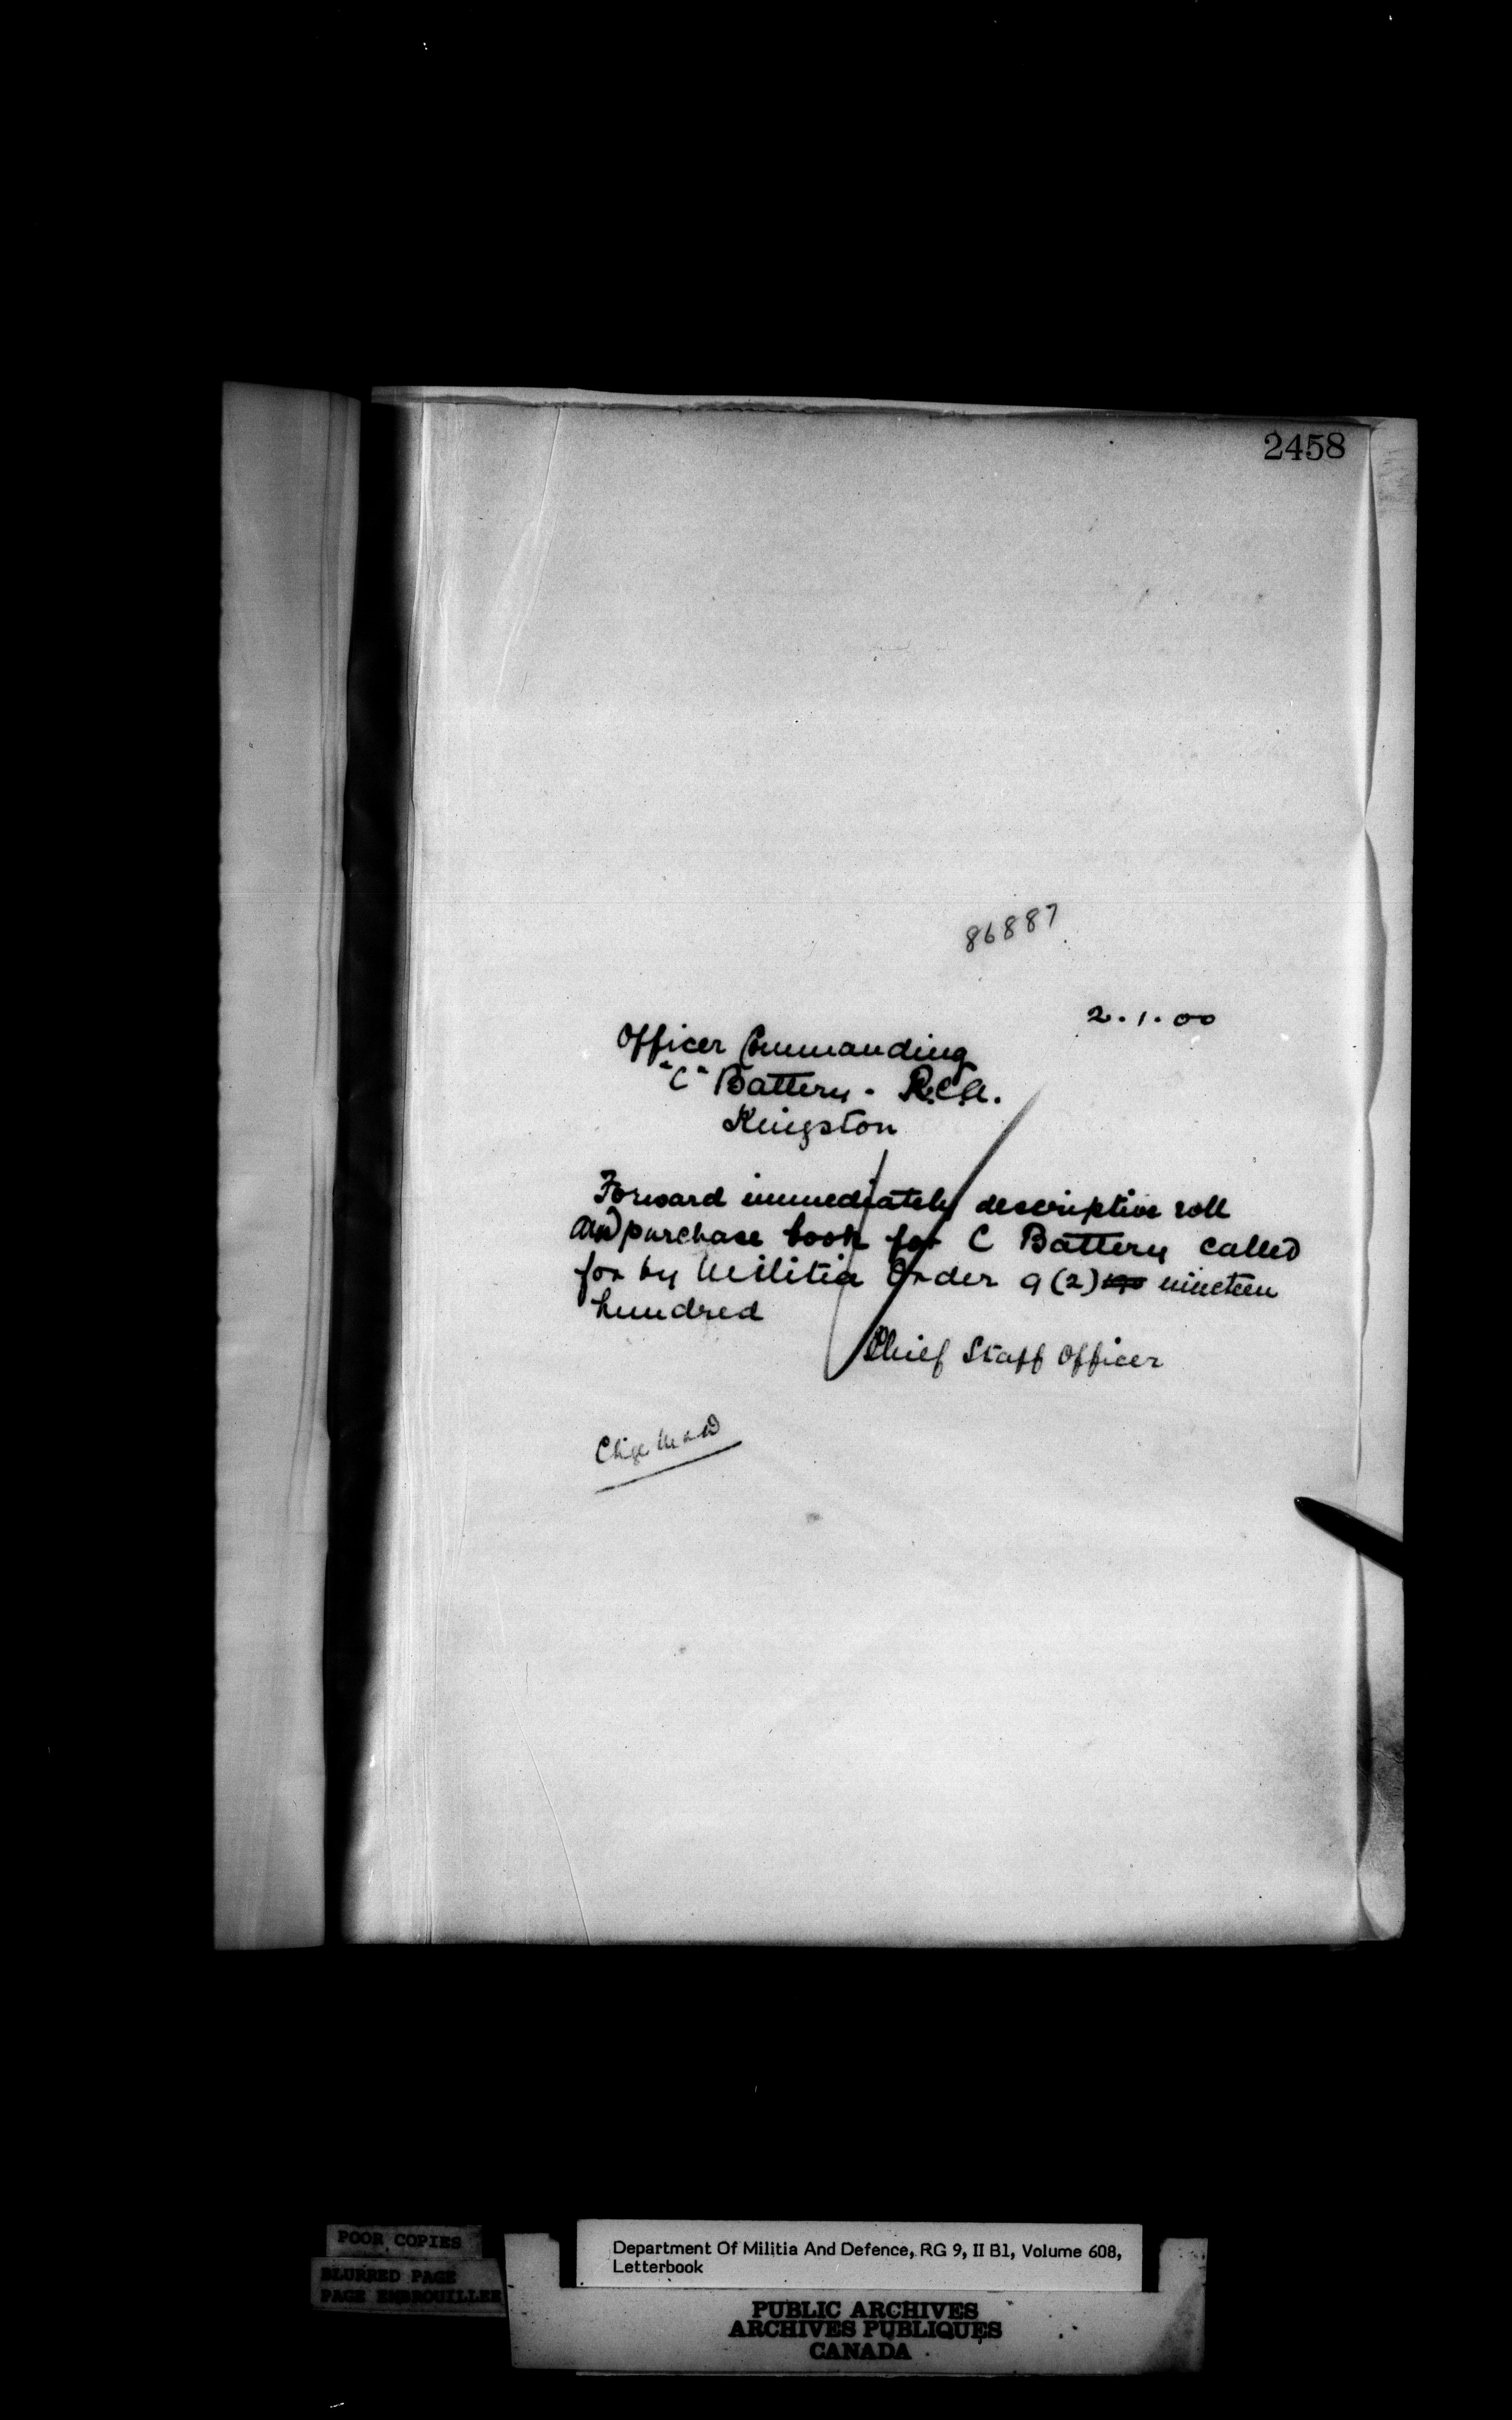 2458
86887
2.1.00
Officer Commanding
"C" Battery - R.C.A.
Kingston
Forward immediately descriptive roll
and purchase book for C Battery called
for by Militia Order 9 (2) 190 nineteen
hundred
Chief Staff Officer
Chge M & D
POOR COPIES
BLURRED PAGE
PAGE EMBROUILLEE
Department Of Militia And Defence, RG 9, II B1, Volume 608,
Letterbook
PUBLIC ARCHIVES
ARCHIVES PUBLIQUES
CANADA